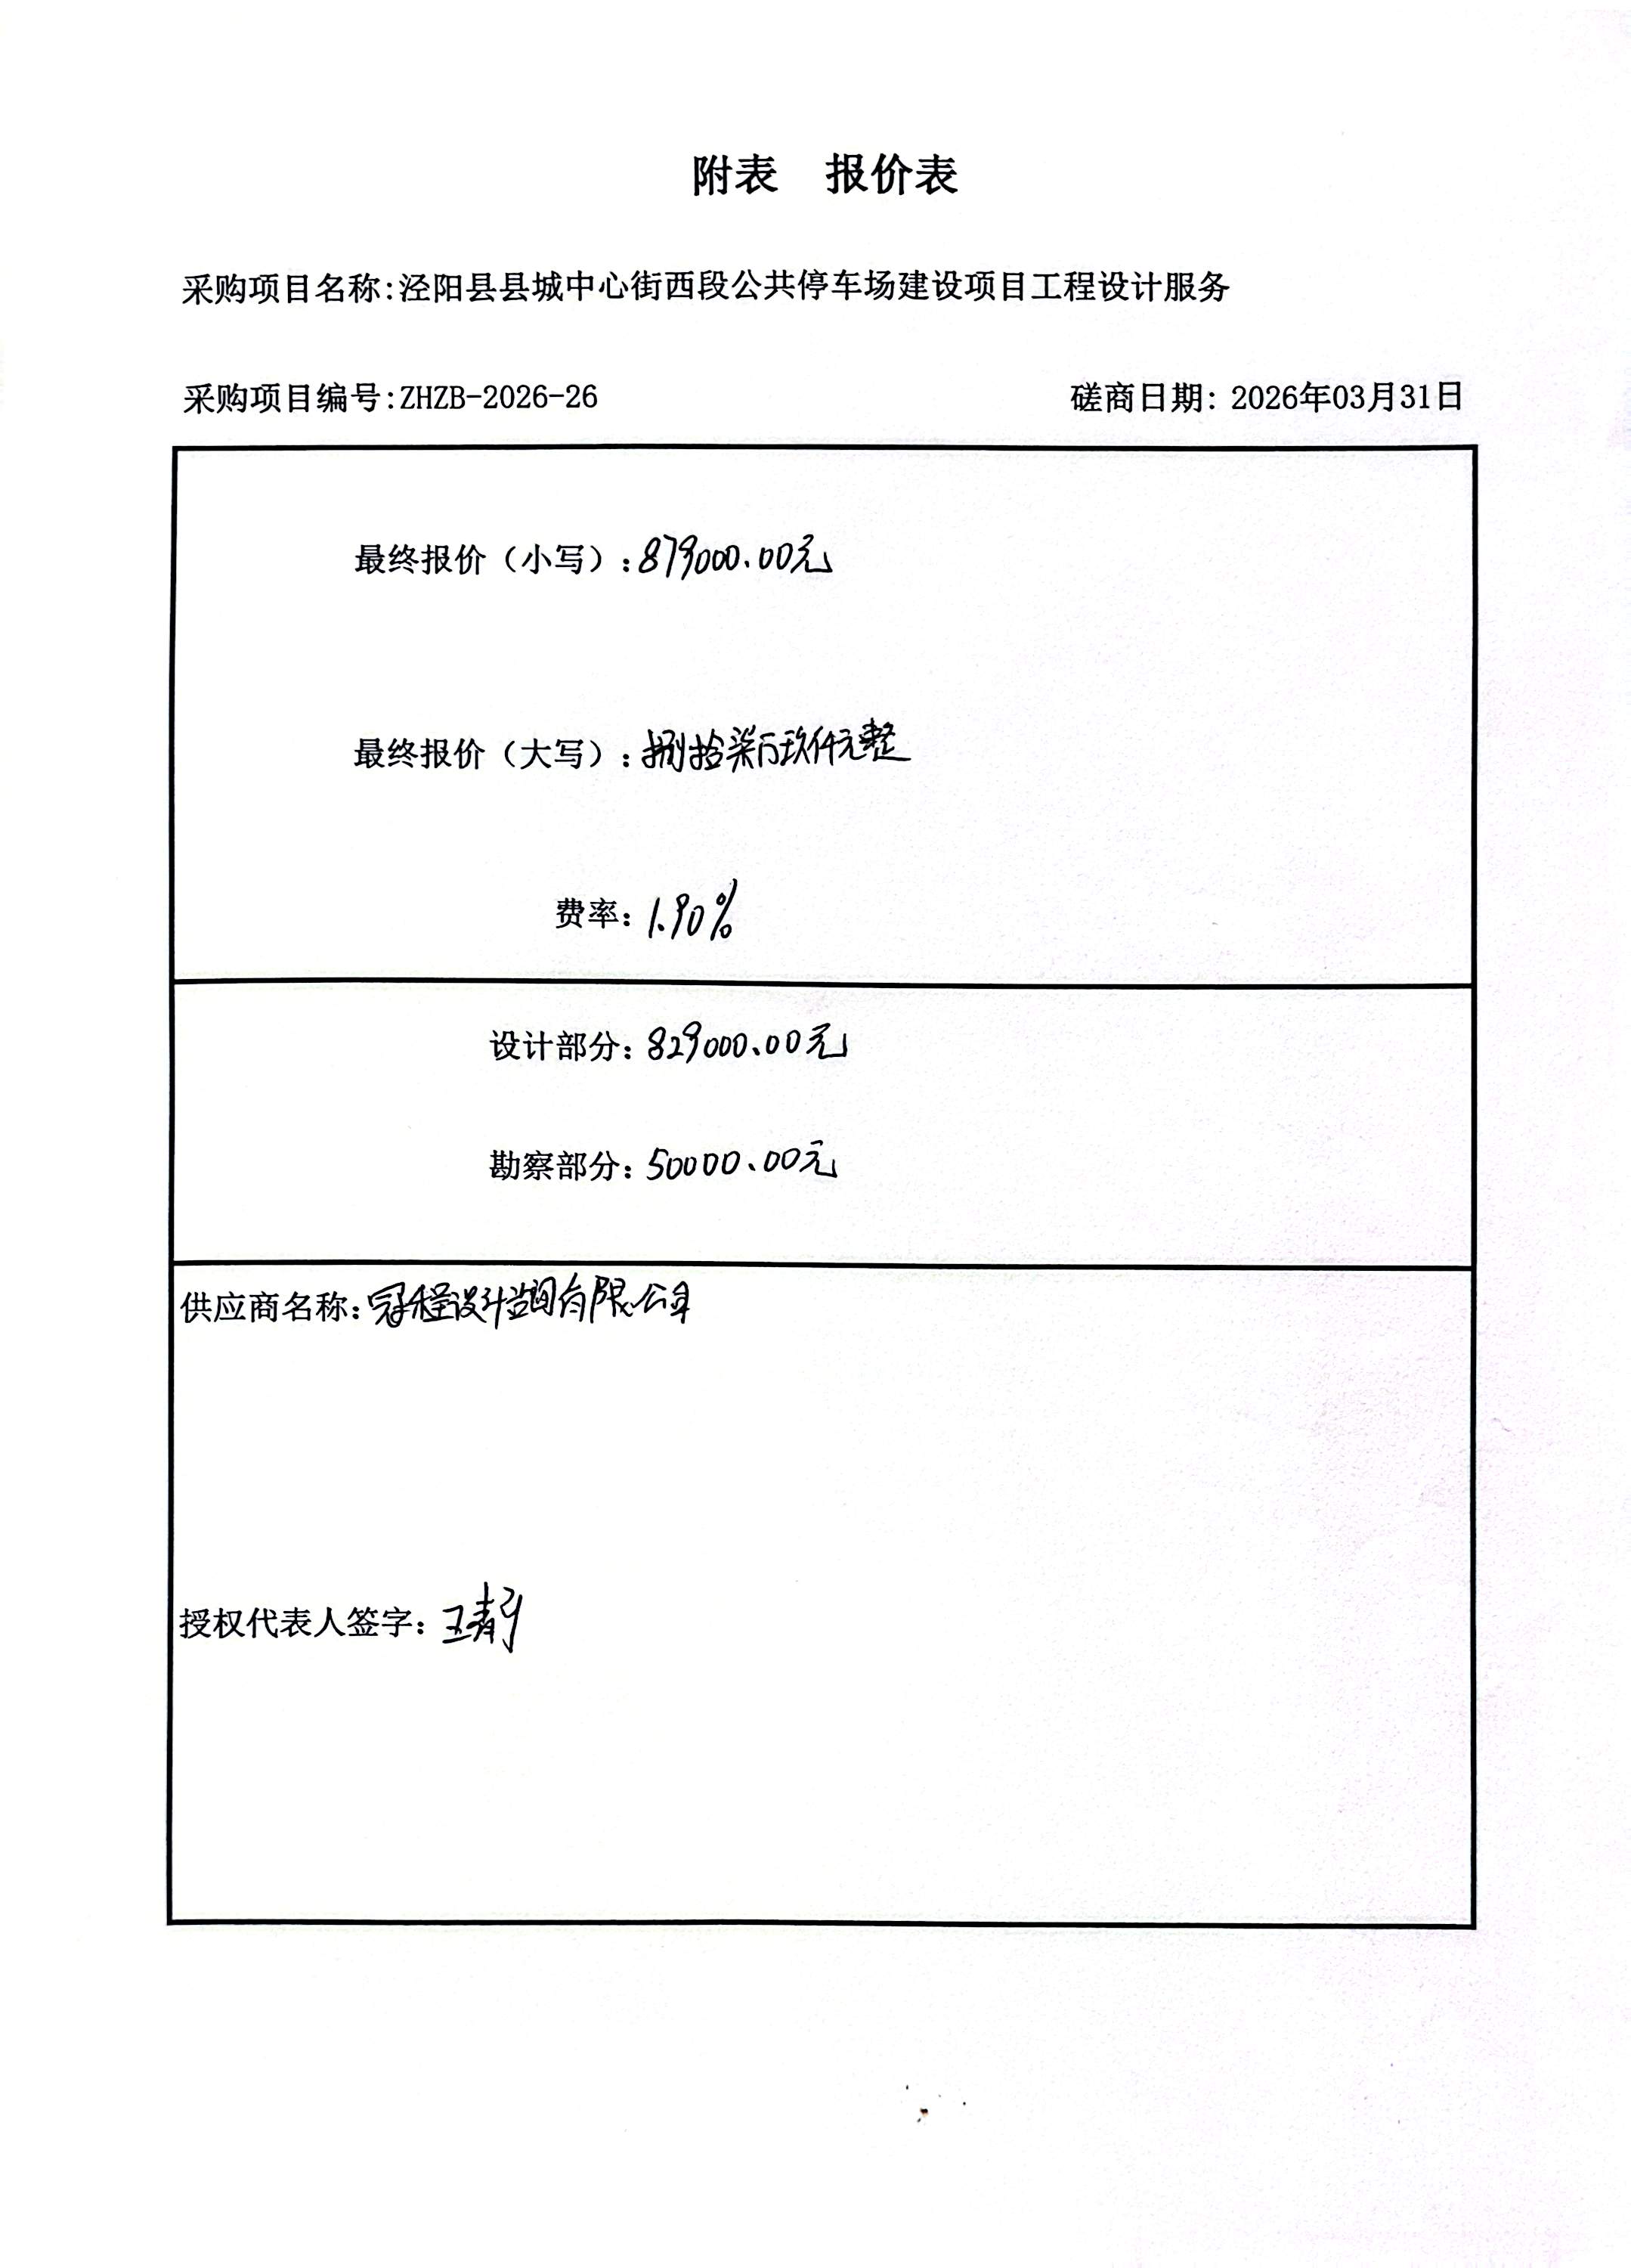 附表 报价表
采购项目名称:泾阳县县城中心街西段公共停车场建设项目工程设计服务
采购项目编号:ZHZB-2026-26 磋商日期: 2026年03月31日
最终报价（小写）: 879000.00元
最终报价（大写）: 捌拾柒万玖仟元整
费率: 1.90%
设计部分: 829000.00元
勘察部分: 50000.00元
供应商名称: 冠程设计咨询有限公司
授权代表人签字: 王静